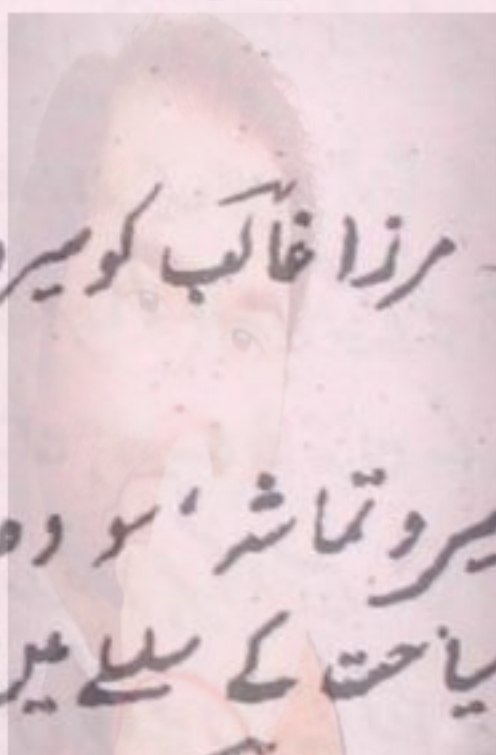 مرزا غالب کو سیر
سیر و تماشہ، سو وہ
سیاحت کے سلسلے میں